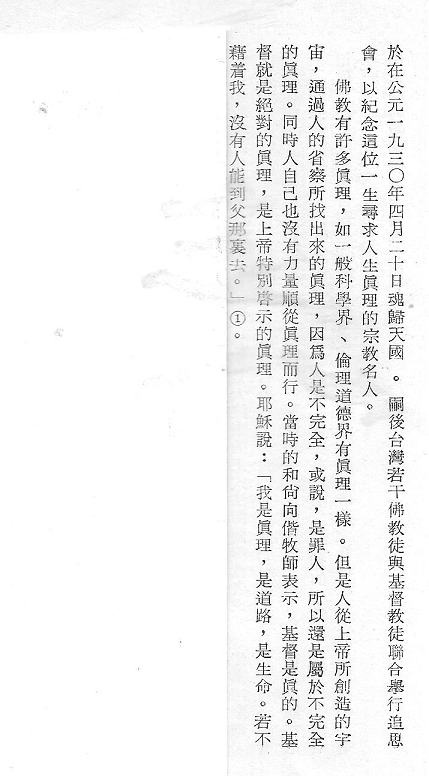 於在公元一九三〇年四月二十日魂歸天國。嗣後台灣若干佛教徒與基督教徒聯合舉行追思
會，以紀念這位一生尋求人生眞理的宗教名人。
佛教有許多眞理，如一般科學界、倫理道德界有眞理一樣。但是人從上帝所創造的宇
宙，通過人的省察所找出來的眞理，因爲人是不完全，或說，是罪人，所以還是屬於不完全
的眞理。同時人自己也沒有力量順從眞理而行。當時的和尙向偕牧師表示，基督是眞的。基
督就是絕對的眞理，是上帝特別啓示的眞理。耶穌說：「我是眞理，是道路，是生命。若不
藉着我，沒有人能到父那裏去。」①。